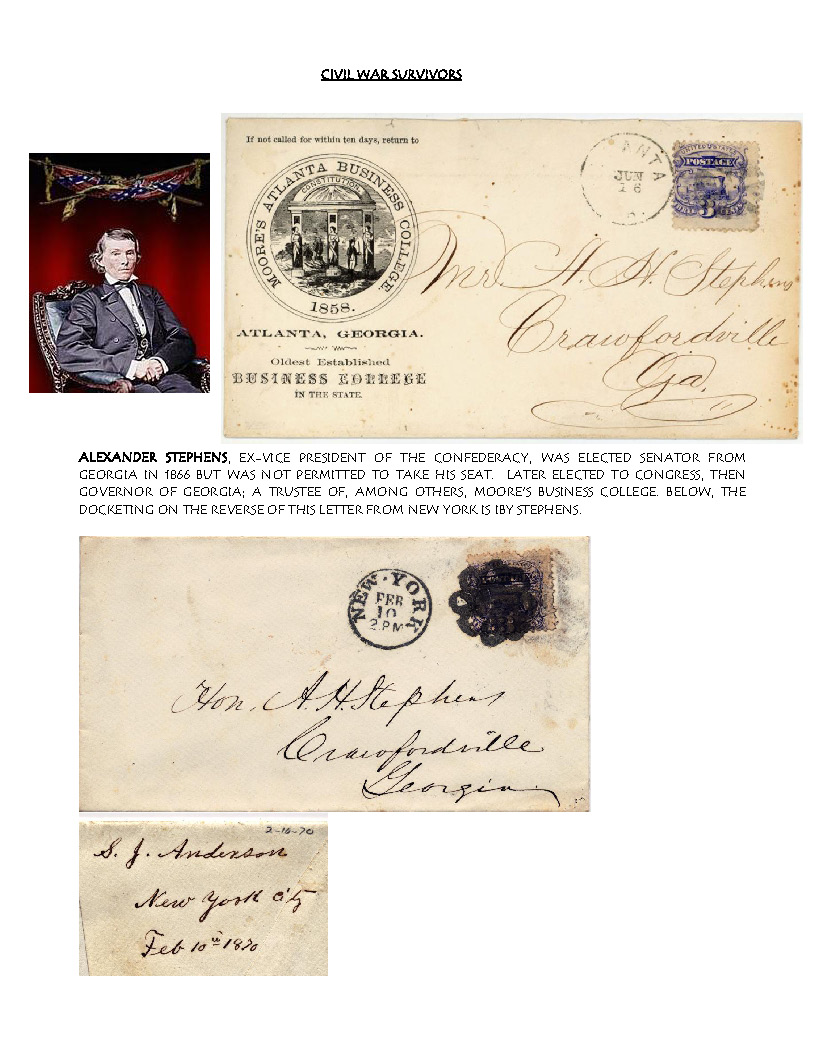 CIVIL WAR SURVIVORS
If not called for within ten days, return to
MOORE'S ATLANTA BUSINESS COLLEGE.
CONSTITUTION
1858.
ATLANTA, GEORGIA.
Oldest Established
BUSINESS COLLEGE
IN THE STATE.
ANTA
JUN
16
UNITED STATES
POSTAGE
3
Mr. A. H. Stephens
Crawfordville
Ga.
ALEXANDER STEPHENS, EX-VICE PRESIDENT OF THE CONFEDERACY, WAS ELECTED SENATOR FROM
GEORGIA IN 1866 BUT WAS NOT PERMITTED TO TAKE HIS SEAT. LATER ELECTED TO CONGRESS, THEN
GOVERNOR OF GEORGIA; A TRUSTEE OF, AMONG OTHERS, MOORE'S BUSINESS COLLEGE. BELOW, THE
DOCKETING ON THE REVERSE OF THIS LETTER FROM NEW YORK IS IBY STEPHENS.
NEW-YORK
FEB
10
2 PM
Hon. A. H. Stephens
Crawfordville
Georgia
2-10-70
S. J. Anderson
New York City
Feb 10th 1870